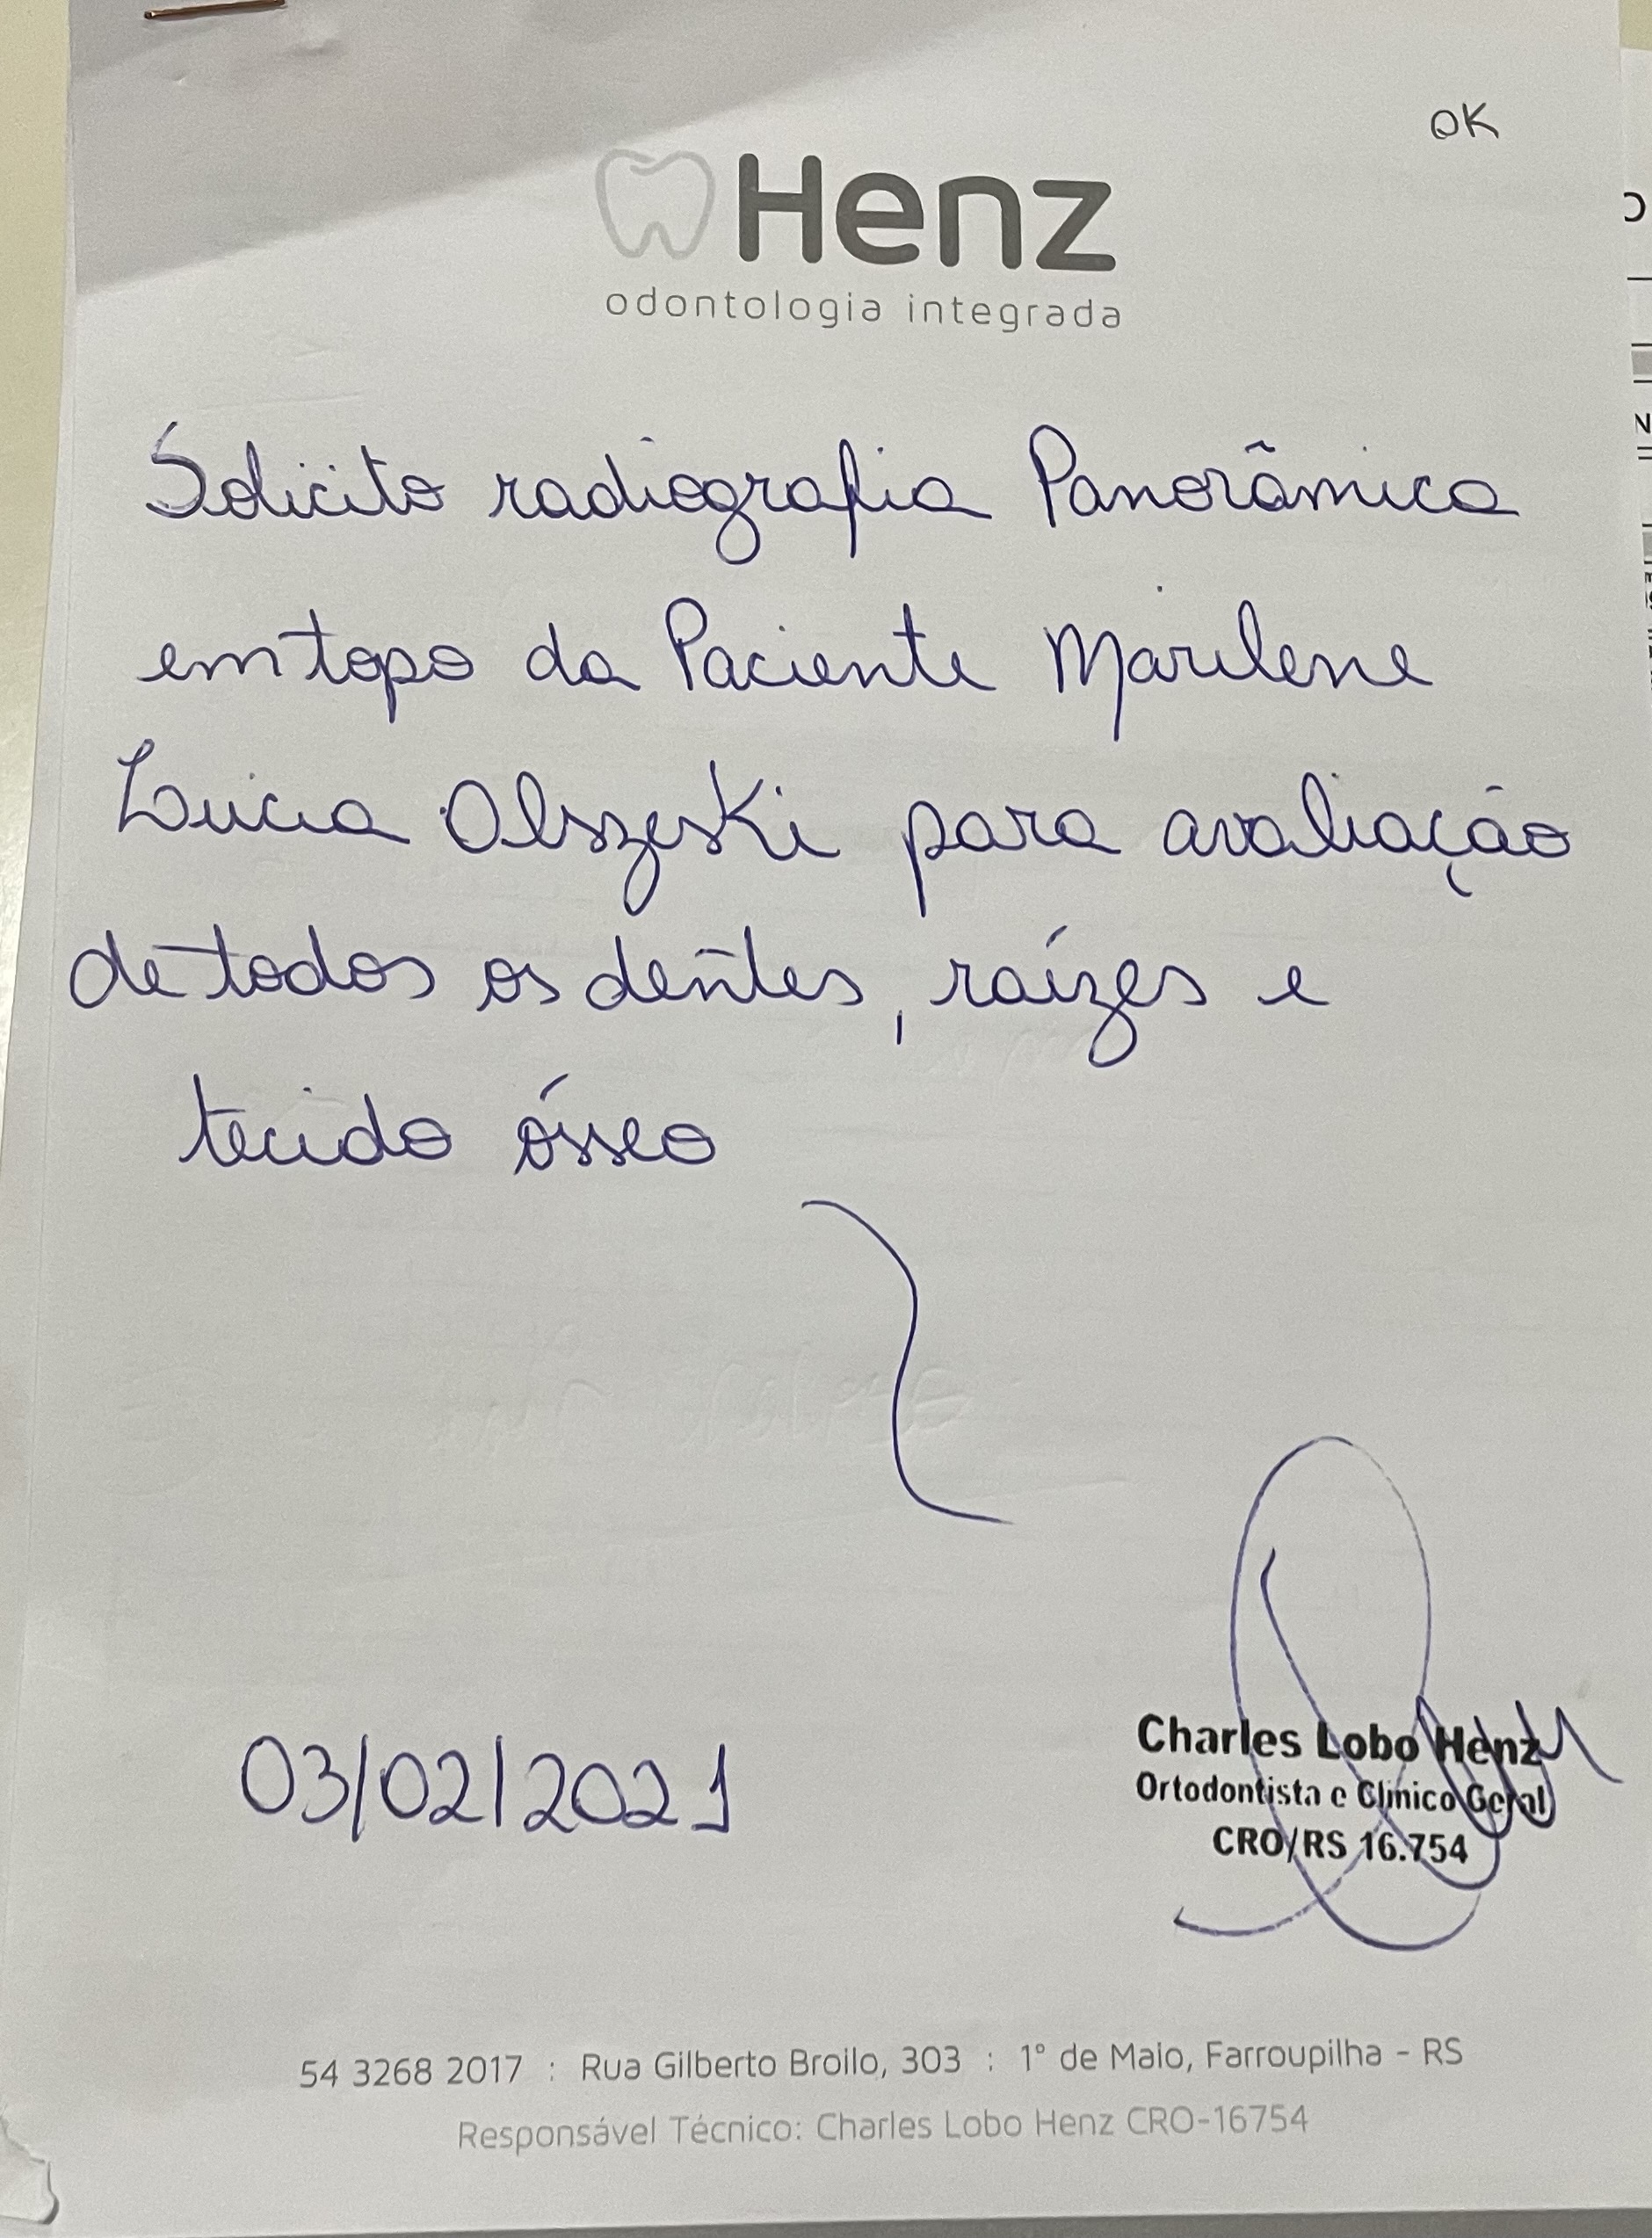 OK
Henz
odontologia integrada
Solicito radiografia Panorâmica
em topo da Paciente Marilene
Lucia Olszeski para avaliação
de todos os dentes, raízes e
tecido ósseo
03/02/2021
Charles Lobo Henz
Ortodontista e Clínico Geral
CRO/RS 16.754
54 3268 2017 : Rua Gilberto Broilo, 303 : 1° de Maio, Farroupilha - RS
Responsável Técnico: Charles Lobo Henz CRO-16754